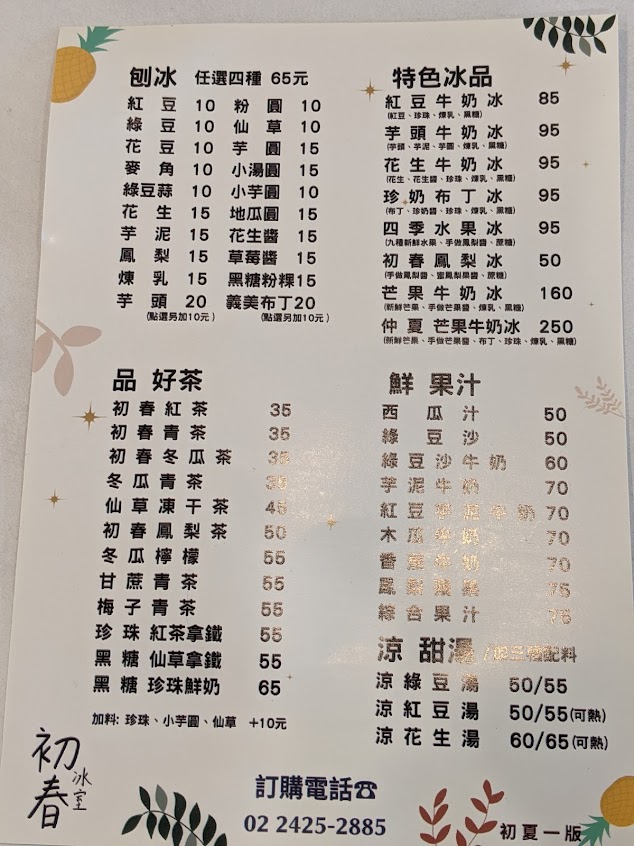 刨冰 任選四種 65元
紅豆 10 粉圓 10
綠豆 10 仙草 10
花豆 10 芋圓 15
麥角 10 小湯圓 15
綠豆蒜 10 小芋圓 10
花生 15 地瓜圓 15
芋泥 15 花生醬 15
鳳梨 15 草莓醬 15
煉乳 15 黑糖粉粿 15
芋頭 20 義美布丁 20
(點選另加10元) (點選另加10元)
特色冰品
紅豆牛奶冰 85
(紅豆、珍珠、煉乳、黑糖)
芋頭牛奶冰 95
(芋頭、芋泥、芋圓、煉乳、黑糖)
花生牛奶冰 95
(花生、花生醬、珍珠、煉乳、黑糖)
珍奶布丁冰 95
(布丁、珍奶醬、珍珠、煉乳、黑糖)
四季水果冰 95
(九種新鮮水果、手做鳳梨醬、蔗糖)
初春鳳梨冰 50
(手做鳳梨醬、蜜鳳梨果醬、蔗糖)
芒果牛奶冰 160
(新鮮芒果、手做芒果醬、煉乳、黑糖)
仲夏芒果牛奶冰 250
(新鮮芒果、手做芒果醬、布丁、珍珠、煉乳、黑糖)
品 好茶
初春紅茶 35
初春青茶 35
初春冬瓜茶 35
冬瓜青茶 35
仙草凍干茶 45
初春鳳梨茶 50
冬瓜檸檬 55
甘蔗青茶 55
梅子青茶 55
珍珠紅茶拿鐵 55
黑糖仙草拿鐵 55
黑糖珍珠鮮奶 65
加料: 珍珠、小芋圓、仙草 +10元
鮮 果汁
西瓜汁 50
綠豆沙 50
綠豆沙牛奶 60
芋泥牛奶 70
紅豆 牛奶 70
木瓜牛奶 70
番 牛奶 70
鳳梨 75
綜合果汁 75
涼 甜湯 配料
涼綠豆湯 50/55
涼紅豆湯 50/55(可熱)
涼花生湯 60/65(可熱)
初春冰室
訂購電話☎
02 2425-2885
初夏一版